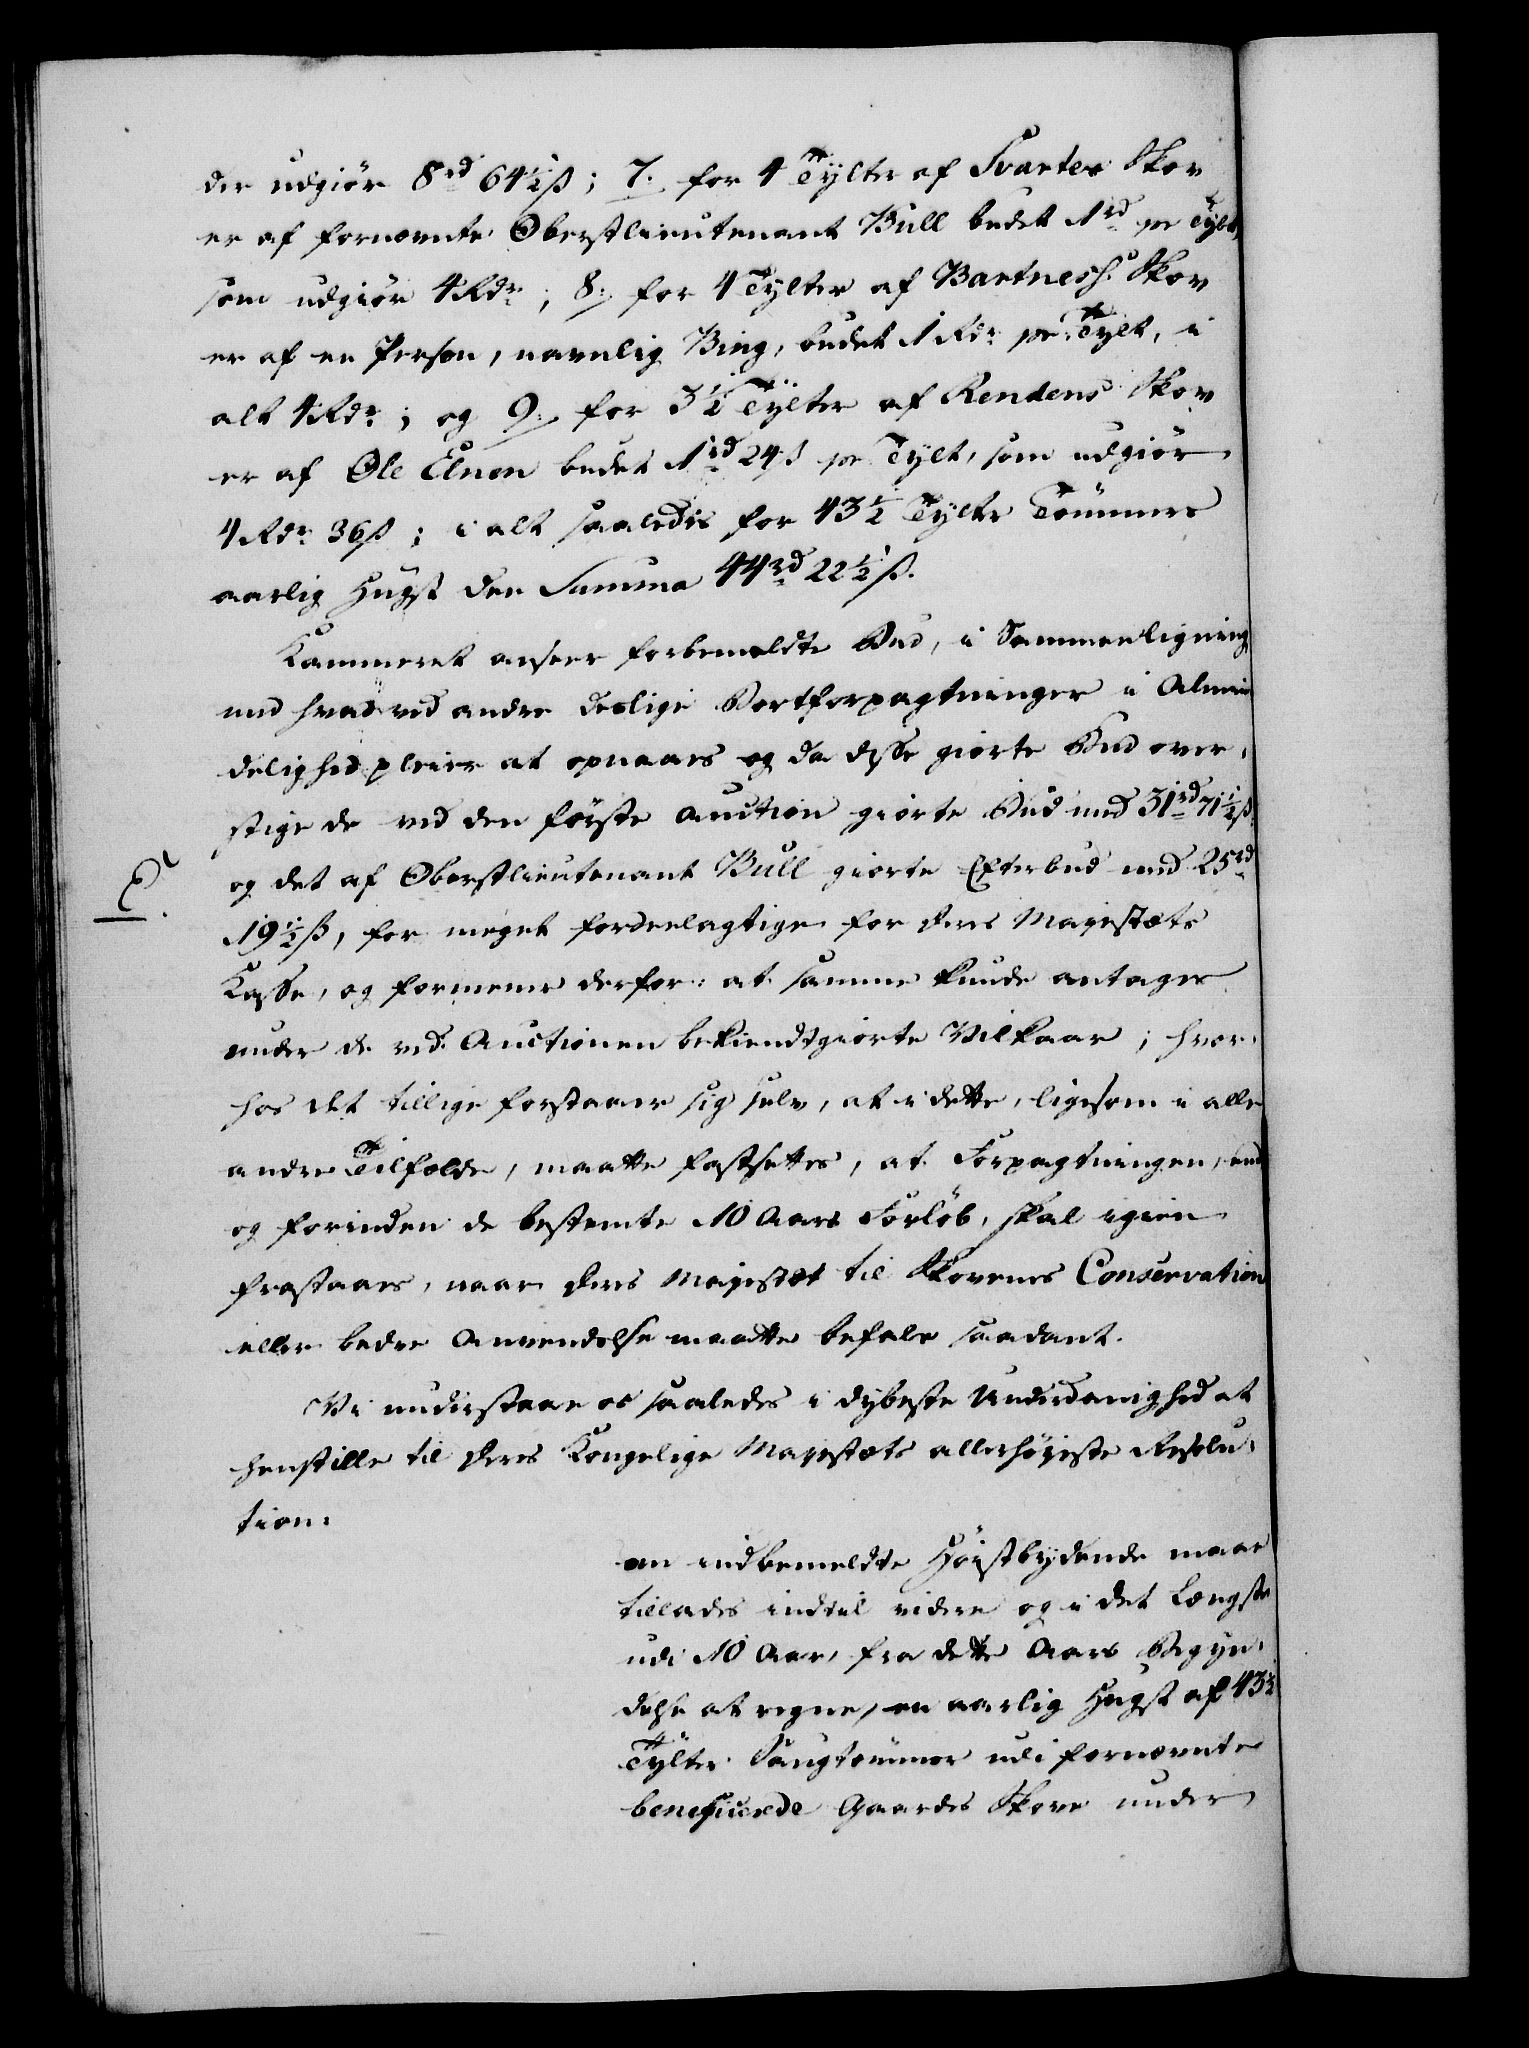 der udgiør 8rd 64½ß; 7. for 4 Tylter af Svartes Skov
er af fornevnte Oberstlieutenant Bull budet 1rd pr Tylt,
som udgiør 4 Rdr; 8. for 4 Tylter af Bartnesh. Skov
er af en Person, navnlig Bing, budet 1 Rdr pr. Tylt, i
alt 4 Rdr; og 9. for 3½ Tylter af Rendens Skov
er af Ole Elnon budet 1rd 24ß pr Tylt, som udgiør
4 Rdr 36ß; i alt saaledes for 43½ Tylter Tømmers
aarlig Hugst den Summa 44rd 22½ß.
Kammeret anseer forbemeldte Bud, i Sammenligning
med hvad ved andre deslige Bortforpagtninger i Almin
delighed pleier at opnaaes og da disse giorte Bud over-
stige de ved den første Auction giorte Bud med 31rd 71½ß.
og det af Oberstlieutenant Bull giorte Efterbud med 25rd
19½ß, for meget fordeelagtige for Deres Majestæts
Kasse, og formener derfor: at samme kunde antages
under de ved Auctionen bekiendtgiorte Vilkaar; hvor-
hos det tillige forstaaer sig selv, at i dette, ligesom i alle
andre Tilfælde, maatte fastsettes, at Forpagtningen, end
og forinden de bestemte 10 Aars Forløb, skal igien
frastaaes, naar Deres Majestæt til Skovenes Conservation
eller bedre Anvendelse maatte befale saadant.
Vi understaae os saaledes i dybeste Underdanighed at
henstille til Deres Kongelige Majestæts allerhøyeste Resolu-
tion:
om indbemeldte Høistbydende maae
tillades indtil videre og i det Længste
udi 10 Aar, fra dette Aars Begyn-
delse at regne, en aarlig Hugst af 43½
Tylter Saugtømmer udi fornevnte
beneficerede Gaardes Skove under